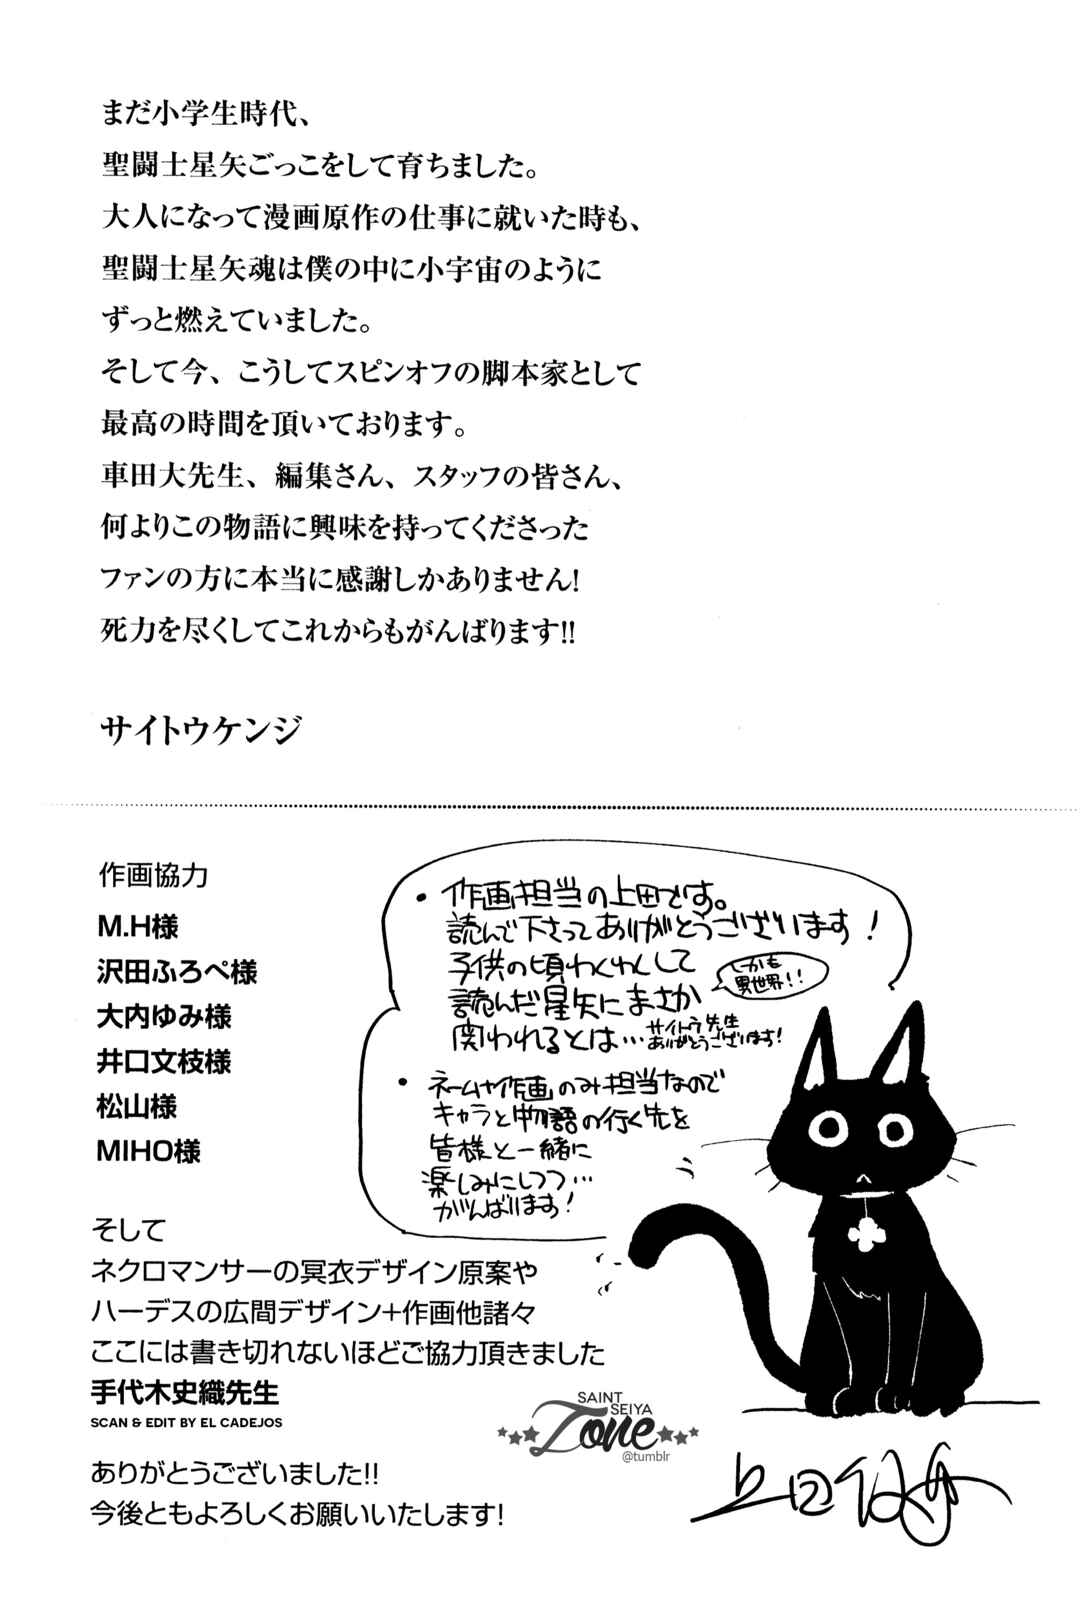 まだ小学生時代、
聖闘士星矢ごっこをして育ちました。
大人になって漫画原作の仕事に就いた時も、
聖闘士星矢魂は僕の中に小宇宙のように
ずっと燃えていました。
そして今、こうしてスピンオフの脚本家として
最高の時間を頂いております。
車田大先生、編集さん、スタッフの皆さん、
何よりこの物語に興味を持ってくださった
ファンの方に本当に感謝しかありません!
死力を尽くしてこれからもがんばります!!
サイトウケンジ
作画協力
M.H様
沢田ふろぺ様
大内ゆみ様
井口文枝様
松山様
MIHO様
そして
ネクロマンサーの冥衣デザイン原案や
ハーデスの広間デザイン+作画他諸々
ここには書き切れないほどご協力頂きました
手代木史織先生
SCAN & EDIT BY EL CADEJOS
ありがとうございました!!
今後ともよろしくお願いいたします!
・作画担当の上田です。
読んで下さってありがとうございます!
子供の頃わくわくして
読んだ星矢にまさか
しかも
異世界!!
関われるとは…サイトウ先生
ありがとうございます!
・ネームや作画のみ担当なので
キャラと物語の行く先を
皆様と一緒に
楽しみにしつつ…
がんばります!
SAINT
SEIYA
Zone
@tumblr
上田